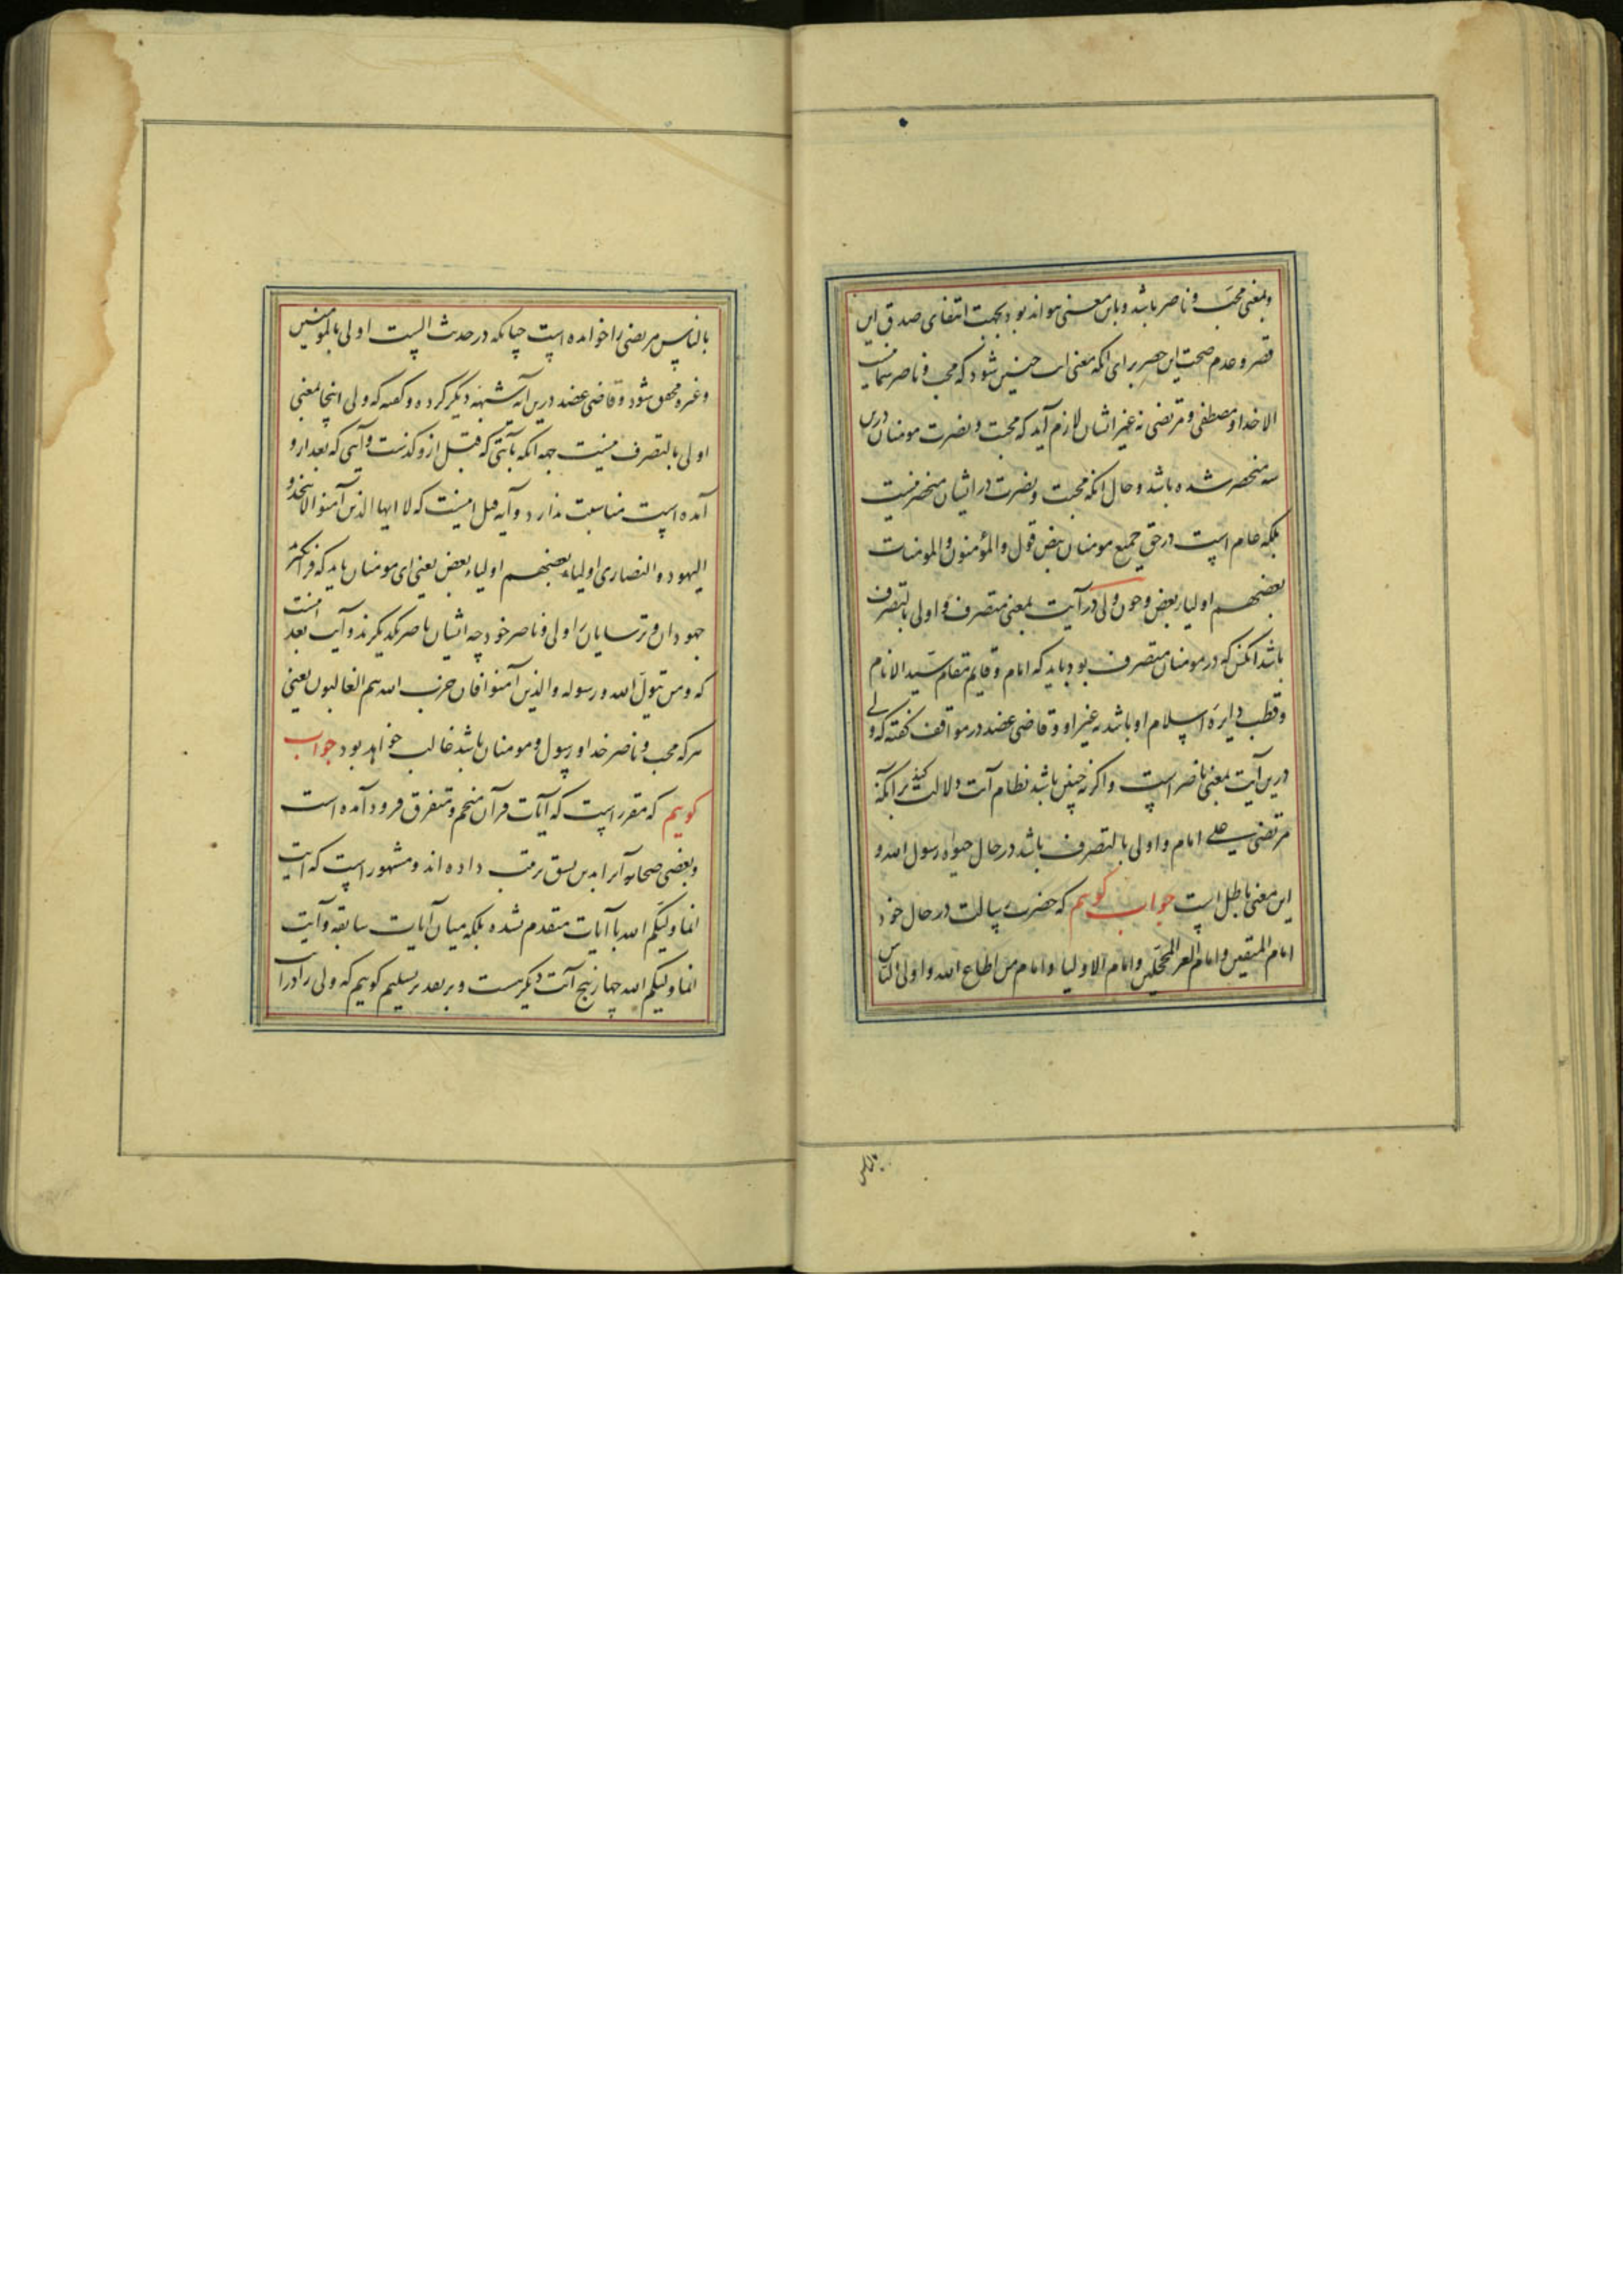 و بمعنی محب و ناصر باشد و باین معنی نتواند بود بجهت انتفای صدق این
قصر و عدم صحت این حصر برای آنکه معنی آیت چنین شود که محب و ناصر شما نیست
الا خدا و مصطفی و مرتضی نه غیر ایشان لازم آید که محبت و نصرت مومنان درین
سه منحصر شده باشد و حال آنکه محبت و نصرت در ایشان منحصر نیست
بلکه عام است در حق جمیع مومنان بنص قول والمؤمنون والمومنات
بعضهم اولیاء بعض و چون ولی در آیت بمعنی متصرف و اولی بالتصرف
باشد آنکس که در مومنان متصرف بود باید که امام و قایم مقام سید الانام
و قطب دایره اسلام او باشد نه غیر او و قاضی عضد در مواقف گفته که ولی
درین آیت بمعنی ناصر است و اگر نه چنین باشد نظام آیت دلالت کند بر آنکه
مرتضی علی امام و اولی بالتصرف باشد در حال حیوة رسول الله و
این معنی باطل است جواب گوییم که حضرت رسالت در حال خود
امام المتقین و امام الغر المحجلین و امام الاولیاء و امام من اطاع الله و اولی الناس
بالناس
بالناس مرتضی را خوانده است چنانکه در حدیث الست اولی بالمومنین
و غیره محقق شود و قاضی عضد درین آیه شبهه دیگر کرده و گفته که ولی اینجا بمعنی
اولی بالتصرف نیست جهه آنکه بآیتی که قبل ازو گذشت و آیتی که بعد ازو
آمده است مناسبت ندارد و آیه قبل اینست که یا ایها الذین آمنوا لا تتخذوا
الیهود والنصاری اولیاء بعضهم اولیاء بعض یعنی ای مومنان باید که فرا نگیرید
جهودان و ترسایان را ولی و ناصر خود چه ایشان ناصر یکدیگرند و آیت بعد اینست
که ومن یتول الله ورسوله والذین آمنوا فان حزب الله هم الغالبون یعنی
هر که محب و ناصر خدا و رسول و مومنان باشد غالب خواهد بود جواب
گوییم که مقرر است که آیات قرآن منجم و متفرق فرود آمده است
و بعضی صحابه آنرا بدین نسق ترتیب داده اند و مشهور است که آیت
انما ولیکم الله با آیات متقدم نشده بلکه میان آیات سابقه و آیت
انما ولیکم الله چهار پنج آیت دیگرست و بر تقدیر تسلیم گوییم که ولی را در آیت